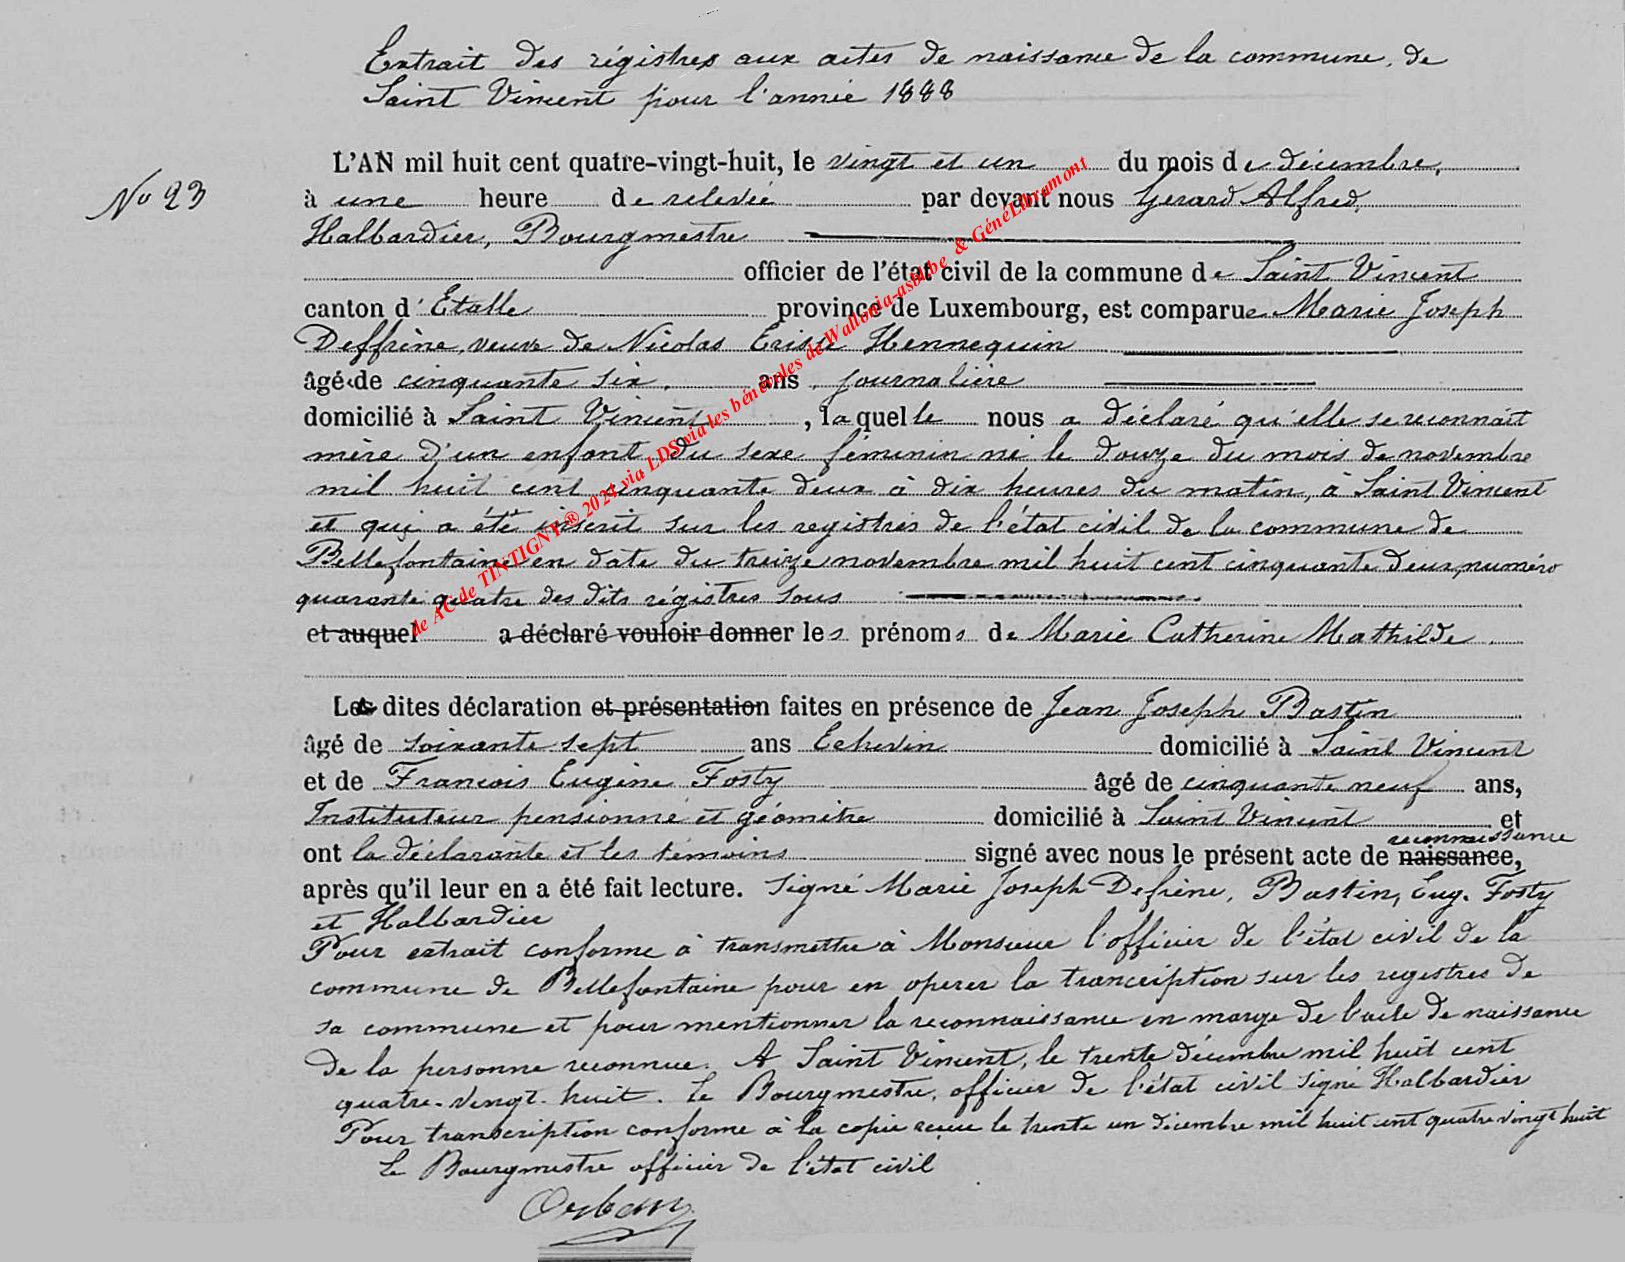 Extrait des régistres aux actes de naissance de la commune de
Saint Vincent pour l'année 1888
L'AN mil huit cent quatre-vingt-huit, le vingt et un du mois de décembre,
No 23
à une heure de relevée par devant nous Gerard Alfred
Halbardier, Bourgmestre
officier de l'état civil de la commune de Saint Vincent
canton d'Etalle province de Luxembourg, est comparue Marie Joseph
Deffrène, veuve de Nicolas Hennequin
âgée de cinquante six ans, journalière
domicilié à Saint Vincent, laquelle nous a déclaré qu'elle se reconnaît
mère d'un enfant du sexe féminin né le douze du mois de novembre
mil huit cent cinquante deux à dix heures du matin, à Saint Vincent
et qui a été inscrit sur les registres de l'état civil de la commune de
Bellefontaine en date du treize novembre mil huit cent cinquante deux, numéro
quarante quatre des dits régistres sous
et auquel a déclaré vouloir donner les prénoms de Marie Catherine Mathilde
La dites déclaration et présentation faites en présence de Jean Joseph Bastin
âgé de soixante sept ans Echevin domicilié à Saint Vincent
et de François Eugène Fosty âgé de cinquante neuf ans,
Instituteur pensionné et géomètre domicilié à Saint Vincent et
reconnaissance
ont la déclarante et les témoins signé avec nous le présent acte de naissance,
après qu'il leur en a été fait lecture. Signé Marie Joseph Defrène, Bastin, Eug. Fosty
et Halbardier
Pour extrait conforme à transmettre à Monsieur l'officier de l'état civil de la
commune de Bellefontaine pour en operer la tranccription sur les registres de
sa commune et pour mentionner la reconnaissance en marge de l'acte de naissance
de la personne reconnue. A Saint Vincent, le trente décembre mil huit cent
quatre-vingt-huit. Le Bourgmestre, officier de l'état civil signé Halbardier
Pour transcription conforme à la copie reçue le trente un décembre mil huit cent quatre vingt huit
Le Bourgmestre officier de l'état civil
de AC de TINTIGNY ® 2021 via LDS via les bénévoles de Wallonia-asbl.be & GénéLibramont